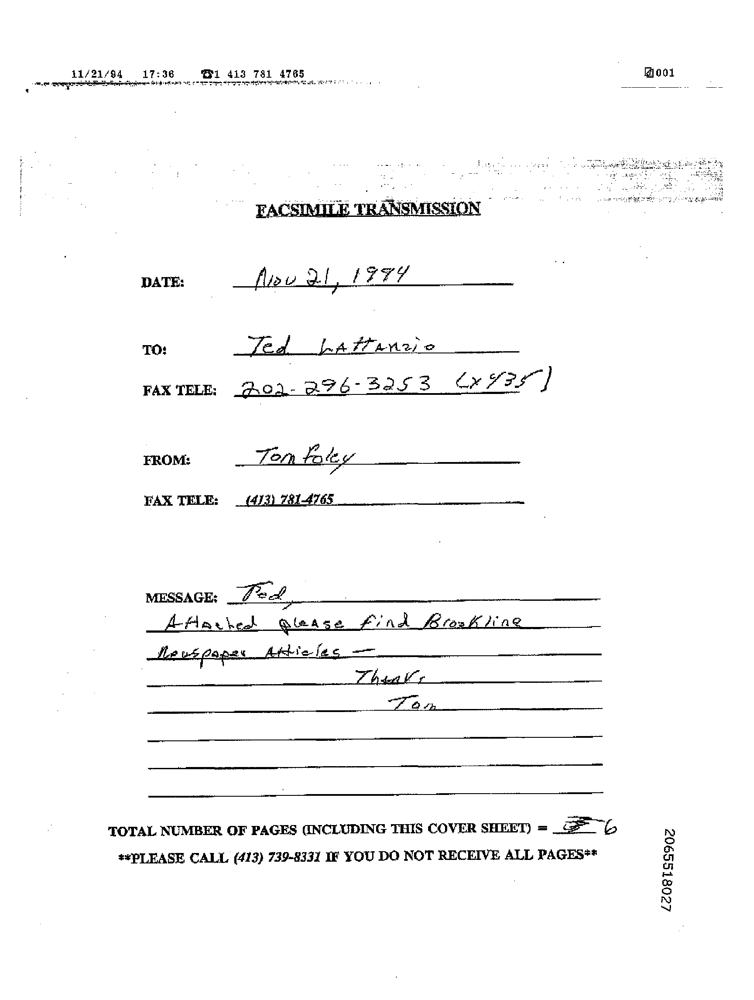 11/21/94 17:36 ☎1 413 781 4765 001
FACSIMILE TRANSMISSION
DATE: Nov 21, 1994
TO: Ted LAttAnzio
FAX TELE: 202-296-3253 (x435)
FROM: Tom Foley
FAX TELE: (413) 781-4765
MESSAGE: Ted,
Attached please find Brookline
Newspaper Articles —
Thanks
Tom
TOTAL NUMBER OF PAGES (INCLUDING THIS COVER SHEET) = 6
**PLEASE CALL (413) 739-8331 IF YOU DO NOT RECEIVE ALL PAGES**
2065518027